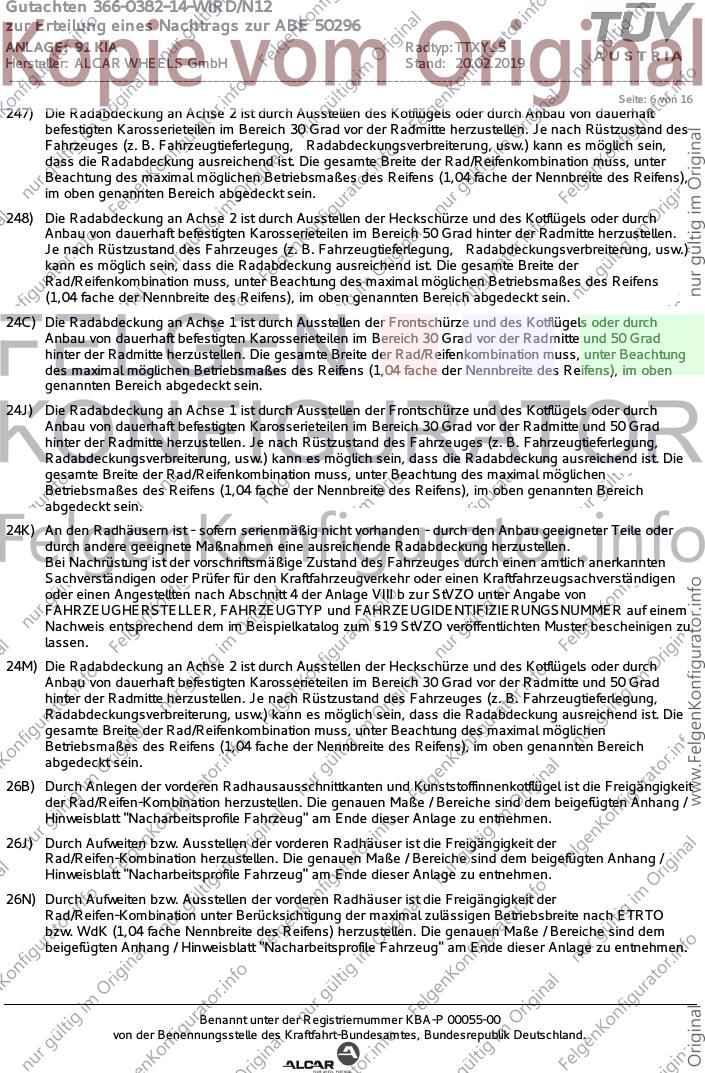 Gutachten 366-0382-14-WIRD/N12
zur Erteilung eines Nachtrags zur ABE 50296
ANLAGE: 91 KIA
Radtyp: TTXYL5
Hersteller: ALCAR WHEELS GmbH
Stand: 20.02.2019
TÜV
AUSTRIA
Kopie vom Original
Seite: 6 von 16
247) Die Radabdeckung an Achse 2 ist durch Ausstellen des Kotflügels oder durch Anbau von dauerhaft
befestigten Karosserieteilen im Bereich 30 Grad vor der Radmitte herzustellen. Je nach Rüstzustand des
Fahrzeuges (z. B. Fahrzeugtieferlegung, Radabdeckungsverbreiterung, usw.) kann es möglich sein,
dass die Radabdeckung ausreichend ist. Die gesamte Breite der Rad/Reifenkombination muss, unter
Beachtung des maximal möglichen Betriebsmaßes des Reifens (1,04 fache der Nennbreite des Reifens),
im oben genannten Bereich abgedeckt sein.
248) Die Radabdeckung an Achse 2 ist durch Ausstellen der Heckschürze und des Kotflügels oder durch
Anbau von dauerhaft befestigten Karosserieteilen im Bereich 50 Grad hinter der Radmitte herzustellen.
Je nach Rüstzustand des Fahrzeuges (z. B. Fahrzeugtieferlegung, Radabdeckungsverbreiterung, usw.)
kann es möglich sein, dass die Radabdeckung ausreichend ist. Die gesamte Breite der
Rad/Reifenkombination muss, unter Beachtung des maximal möglichen Betriebsmaßes des Reifens
(1,04 fache der Nennbreite des Reifens), im oben genannten Bereich abgedeckt sein.
24C) Die Radabdeckung an Achse 1 ist durch Ausstellen der Frontschürze und des Kotflügels oder durch
Anbau von dauerhaft befestigten Karosserieteilen im Bereich 30 Grad vor der Radmitte und 50 Grad
hinter der Radmitte herzustellen. Die gesamte Breite der Rad/Reifenkombination muss, unter Beachtung
des maximal möglichen Betriebsmaßes des Reifens (1,04 fache der Nennbreite des Reifens), im oben
genannten Bereich abgedeckt sein.
24J) Die Radabdeckung an Achse 1 ist durch Ausstellen der Frontschürze und des Kotflügels oder durch
Anbau von dauerhaft befestigten Karosserieteilen im Bereich 30 Grad vor der Radmitte und 50 Grad
hinter der Radmitte herzustellen. Je nach Rüstzustand des Fahrzeuges (z. B. Fahrzeugtieferlegung,
Radabdeckungsverbreiterung, usw.) kann es möglich sein, dass die Radabdeckung ausreichend ist. Die
gesamte Breite der Rad/Reifenkombination muss, unter Beachtung des maximal möglichen
Betriebsmaßes des Reifens (1,04 fache der Nennbreite des Reifens), im oben genannten Bereich
abgedeckt sein.
24K) An den Radhäusern ist - sofern serienmäßig nicht vorhanden - durch den Anbau geeigneter Teile oder
durch andere geeignete Maßnahmen eine ausreichende Radabdeckung herzustellen.
Bei Nachrüstung ist der vorschriftsmäßige Zustand des Fahrzeuges durch einen amtlich anerkannten
Sachverständigen oder Prüfer für den Kraftfahrzeugverkehr oder einen Kraftfahrzeugsachverständigen
oder einen Angestellten nach Abschnitt 4 der Anlage VIII b zur StVZO unter Angabe von
FAHRZEUGHERSTELLER, FAHRZEUGTYP und FAHRZEUGIDENTIFIZIERUNGSNUMMER auf einem
Nachweis entsprechend dem im Beispielkatalog zum §19 StVZO veröffentlichten Muster bescheinigen zu
lassen.
24M) Die Radabdeckung an Achse 2 ist durch Ausstellen der Heckschürze und des Kotflügels oder durch
Anbau von dauerhaft befestigten Karosserieteilen im Bereich 30 Grad vor der Radmitte und 50 Grad
hinter der Radmitte herzustellen. Je nach Rüstzustand des Fahrzeuges (z. B. Fahrzeugtieferlegung,
Radabdeckungsverbreiterung, usw.) kann es möglich sein, dass die Radabdeckung ausreichend ist. Die
gesamte Breite der Rad/Reifenkombination muss, unter Beachtung des maximal möglichen
Betriebsmaßes des Reifens (1,04 fache der Nennbreite des Reifens), im oben genannten Bereich
abgedeckt sein.
26B) Durch Anlegen der vorderen Radhausausschnittkanten und Kunststoffinnenkotflügel ist die Freigängigkeit
der Rad/Reifen-Kombination herzustellen. Die genauen Maße / Bereiche sind dem beigefügten Anhang /
Hinweisblatt "Nacharbeitsprofile Fahrzeug" am Ende dieser Anlage zu entnehmen.
26J) Durch Aufweiten bzw. Ausstellen der vorderen Radhäuser ist die Freigängigkeit der
Rad/Reifen-Kombination herzustellen. Die genauen Maße / Bereiche sind dem beigefügten Anhang /
Hinweisblatt "Nacharbeitsprofile Fahrzeug" am Ende dieser Anlage zu entnehmen.
26N) Durch Aufweiten bzw. Ausstellen der vorderen Radhäuser ist die Freigängigkeit der
Rad/Reifen-Kombination unter Berücksichtigung der maximal zulässigen Betriebsbreite nach ETRTO
bzw. WdK (1,04 fache Nennbreite des Reifens) herzustellen. Die genauen Maße / Bereiche sind dem
beigefügten Anhang / Hinweisblatt "Nacharbeitsprofile Fahrzeug" am Ende dieser Anlage zu entnehmen.
FELGEN
KONFIGURATOR
FelgenKonfigurator.info
nur gültig im Original
www.FelgenKonfigurator.info
Original
Benannt unter der Registriernummer KBA-P 00055-00
von der Benennungsstelle des Kraftfahrt-Bundesamtes, Bundesrepublik Deutschland.
ALCAR